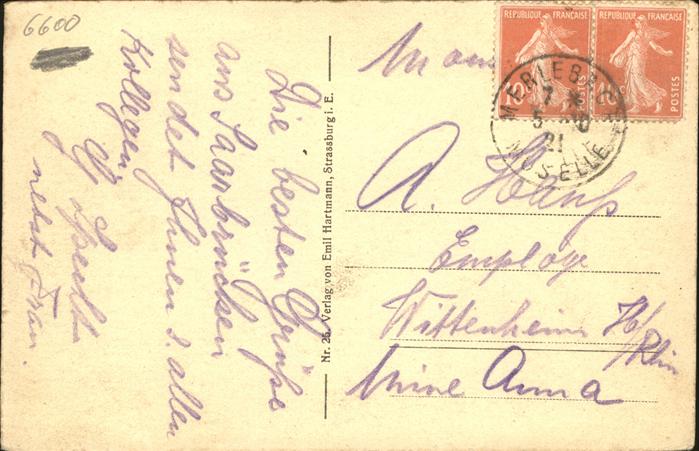 6600
Die besten Grüße
aus Saarbrücken
sendet Ihnen u. allen
Kollegen
G. Specht
nebst Frau.
Nr. 25. Verlag von Emil Hartmann, Strassburg i. E.
REPUBLIQUE FRANÇAISE
POSTES
REPUBLIQUE FRANÇAISE
POSTES
MERLEBACH
7
5
21
MOSELLE
A.
Employe
Wittenheim H/Rhin
Mine Anna